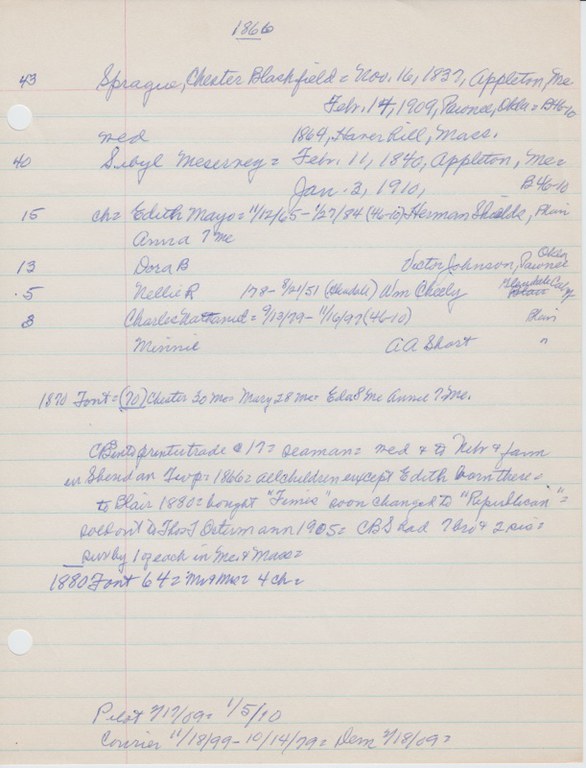 1866
43 Sprague, Chester Blashfield = Nov. 16, 1837, Appleton, Me
Febr. 14, 1909, Pawnee, Okla = B46-10
med 1864, Haverhill, Mass.
40 Sibyl Meservey = Febr. 11, 1840, Appleton, Me =
Jan. 3, 1910, B46-10
15 ch = Edith Mayo = 11/12/65 - 1/27/84 (46-10) Herman Shields, Blair
Anna 7 Me
13 Dora B Victor Johnson, Pawnee Okla
5 Nellie R 178 - 8/21/51 (Glendale) Wm Cheely Glendale Calif
3 Charles Nathaniel = 9/13/79 - 11/16/97 (46-10) Blair
Minnie A A Short "
1870 Font = (70) Chester 30 Mo = Mary 28 Me = Eda 8 Me Annie 7 Me.
CB into printer trade @ 17 = seaman = med & to Nebr & farm
in Sheridan Twp = 1866 = all children except Edith born there =
to Blair 1880 = bought "Times" soon changed to "Republican" =
sold out to Thos T Osterman 1905 = CBS had 7 bro & 2 sis =
surv by 1 of each in Me & Mass =
1880 Font 64 = Mr & Mrs = 4 ch =
Pilot 2/17/09 = 1/5/10
Courier 11/18/99 - 10/14/79 = Dem 2/18/09 =